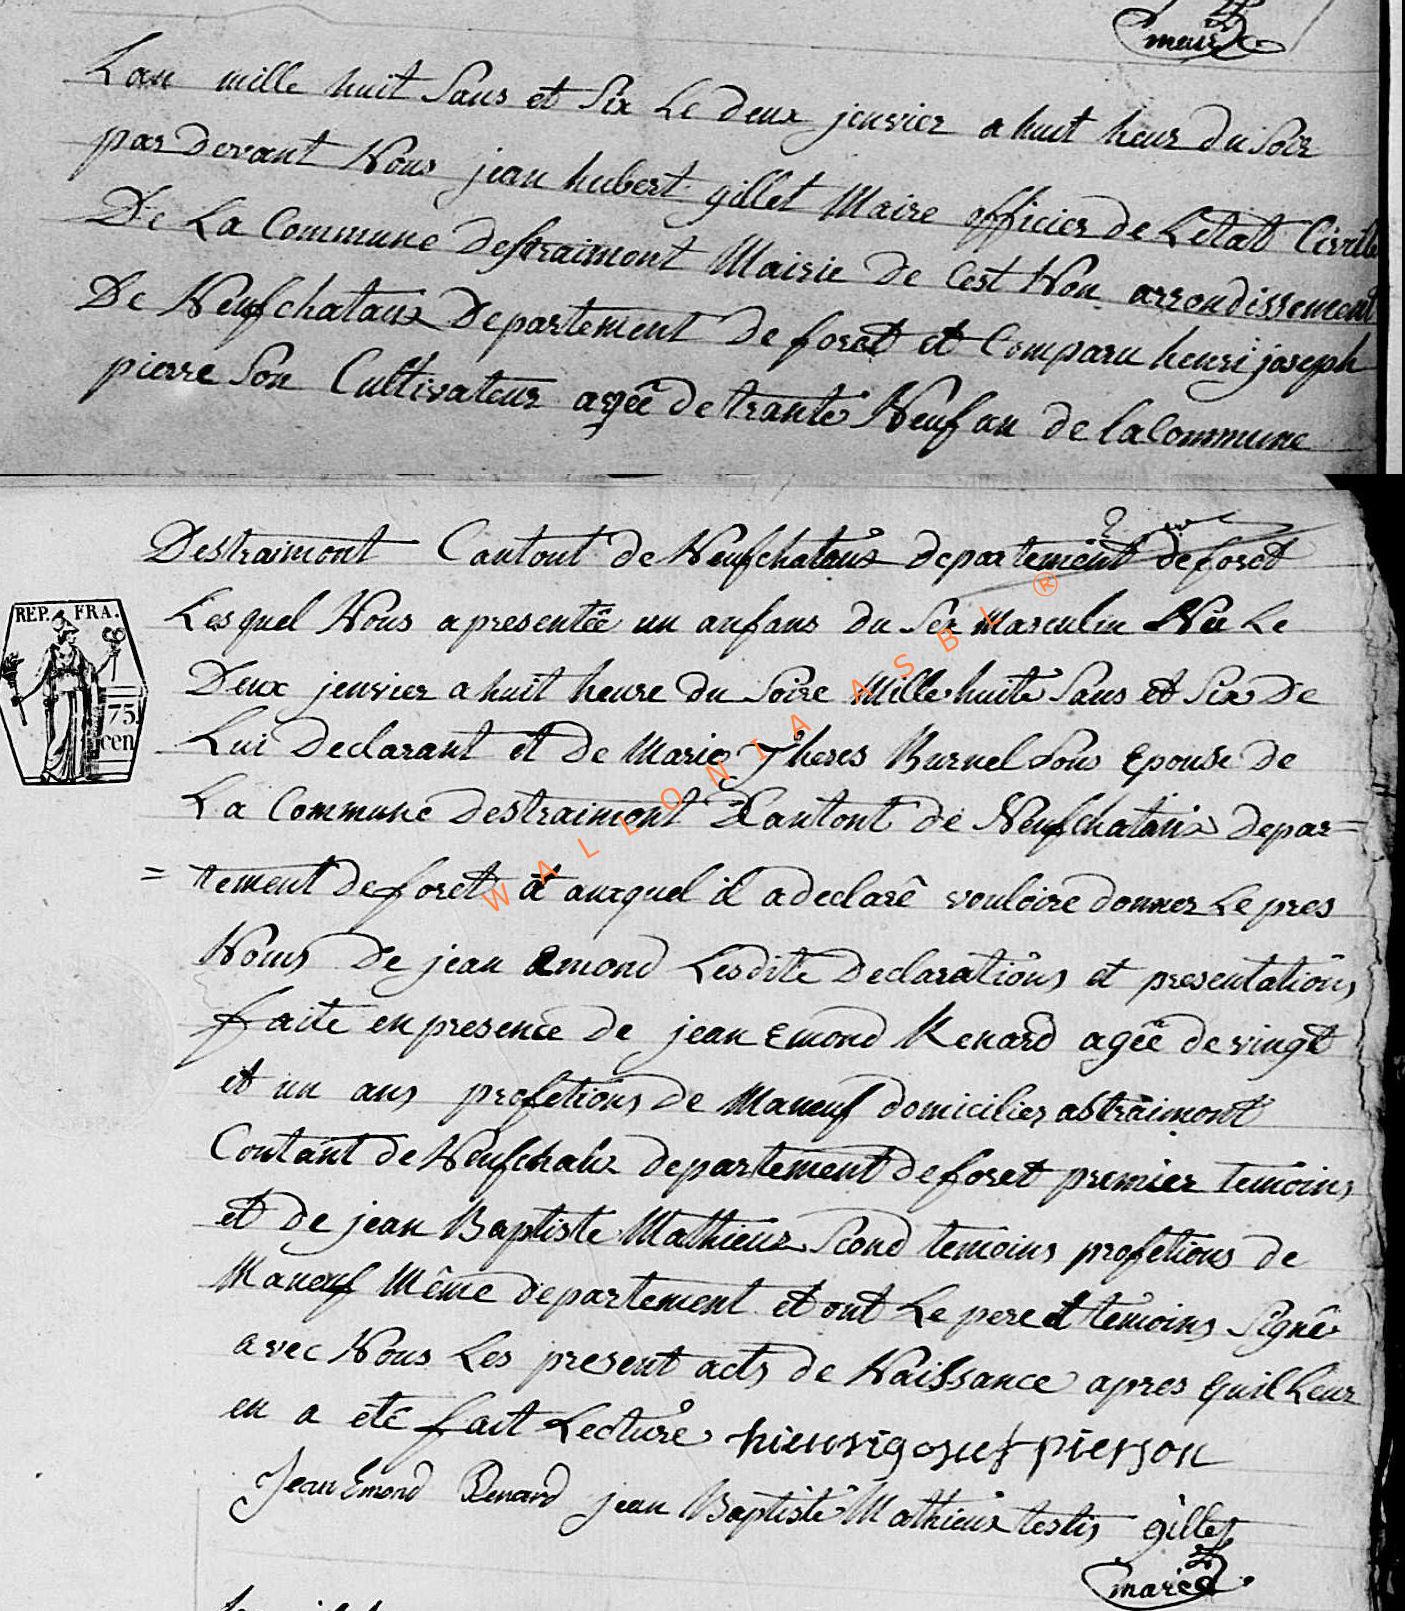 maire
Lan mille huit Sans et Six Le deux jenvier a huit heur du Soir
par devant Nous jean hubert gillet Maire officier de Letat Civille
De La Commune destraimont Mairie de Cest Non arrondissement
De Neufchataux Departement De foret et Comparu henri joseph
pierre Son Cultivateur ageê de trante Neuf an de la Commune
2me
Destraimont Cantont de Neufchataux departement de foret
Lesquel Nous apresentêe un anfans du Sex Masculin Née Le
REP. FRA.
75
cen
Deux jenvier a huit heure du Soire Mille huite Sans et Six De
Lui Declarant et de Marie Theres Burnel Sons Epouse de
La Commune destraimont Cantont de Neufchataix depar=
= tement de foret et auxquel il a declarê vouloire donner Le pres
Noms De jean Emond Lesdite Declarations et presentations
faite en presence de jean Emond Renard ageê de vingt
et un ans profetions De Maneuf domicilier a Straimont
Contant de Neufchatx departement de foret premier temoins
et de jean Baptiste Mathieux Scond temoins profetions de
Maneuf Même departement et ont Le pere et temoins Signê
avec Nous Les present acts de Naissance apres quil Leur
en a etê fait Lecture hienrigosuef pierson
Jean Emond Renard jean Baptiste Mathieux testis gillet
maire
WALLONIA ASBL ®